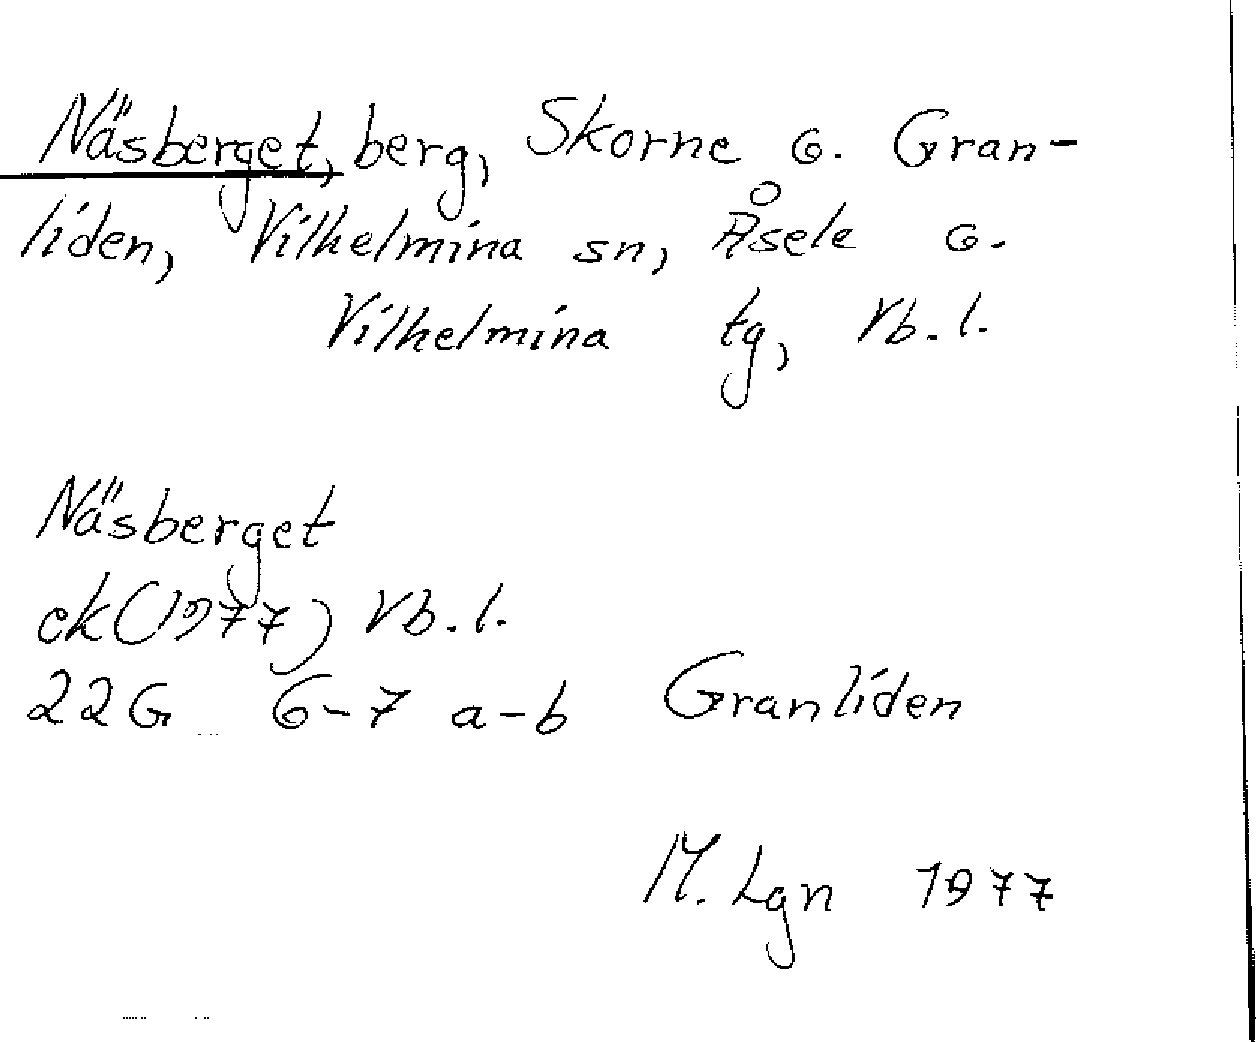 Näsberget, berg, Skorne o. Gran-
liden, Vilhelmina sn, Åsele o.
Vilhelmina tg, Vb. l.
Näsberget
ek (1977) Vb. l.
22G 6-7 a-b Granliden
M. Lgn 1977